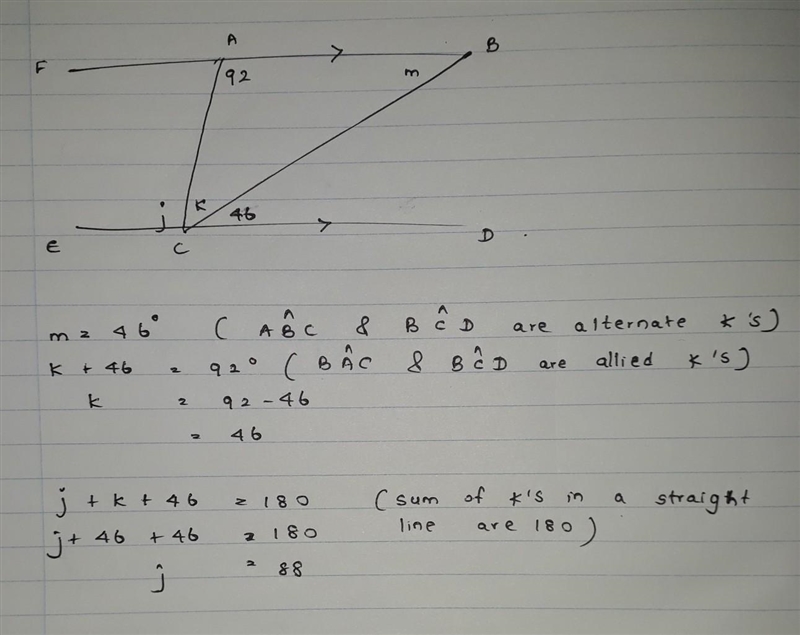 A
B
F
92
m
j
K
46
E
C
D
m = 46° ( AB̂C & BĈD are alternate ∠'s)
K + 46 = 92° ( BÂC & BĈD are allied ∠'s)
k = 92 - 46
= 46
j + k + 46 = 180 (sum of ∠'s in a straight
j + 46 + 46 = 180 line are 180)
j = 88